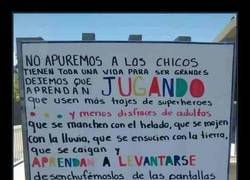 NO APUREMOS A LOS CHICOS
TIENEN TODA UNA VIDA PARA SER GRANDES
DEJEMOS QUE
APRENDAN JUGANDO
que usen más trajes de superheroes
y menos disfraces de adultos
que se manchen con el helado, que se mojen
con la lluvia, que se ensucien con la tierra,
que se caigan y
APRENDAN A LEVANTARSE
desenchufémoslos de las pantallas